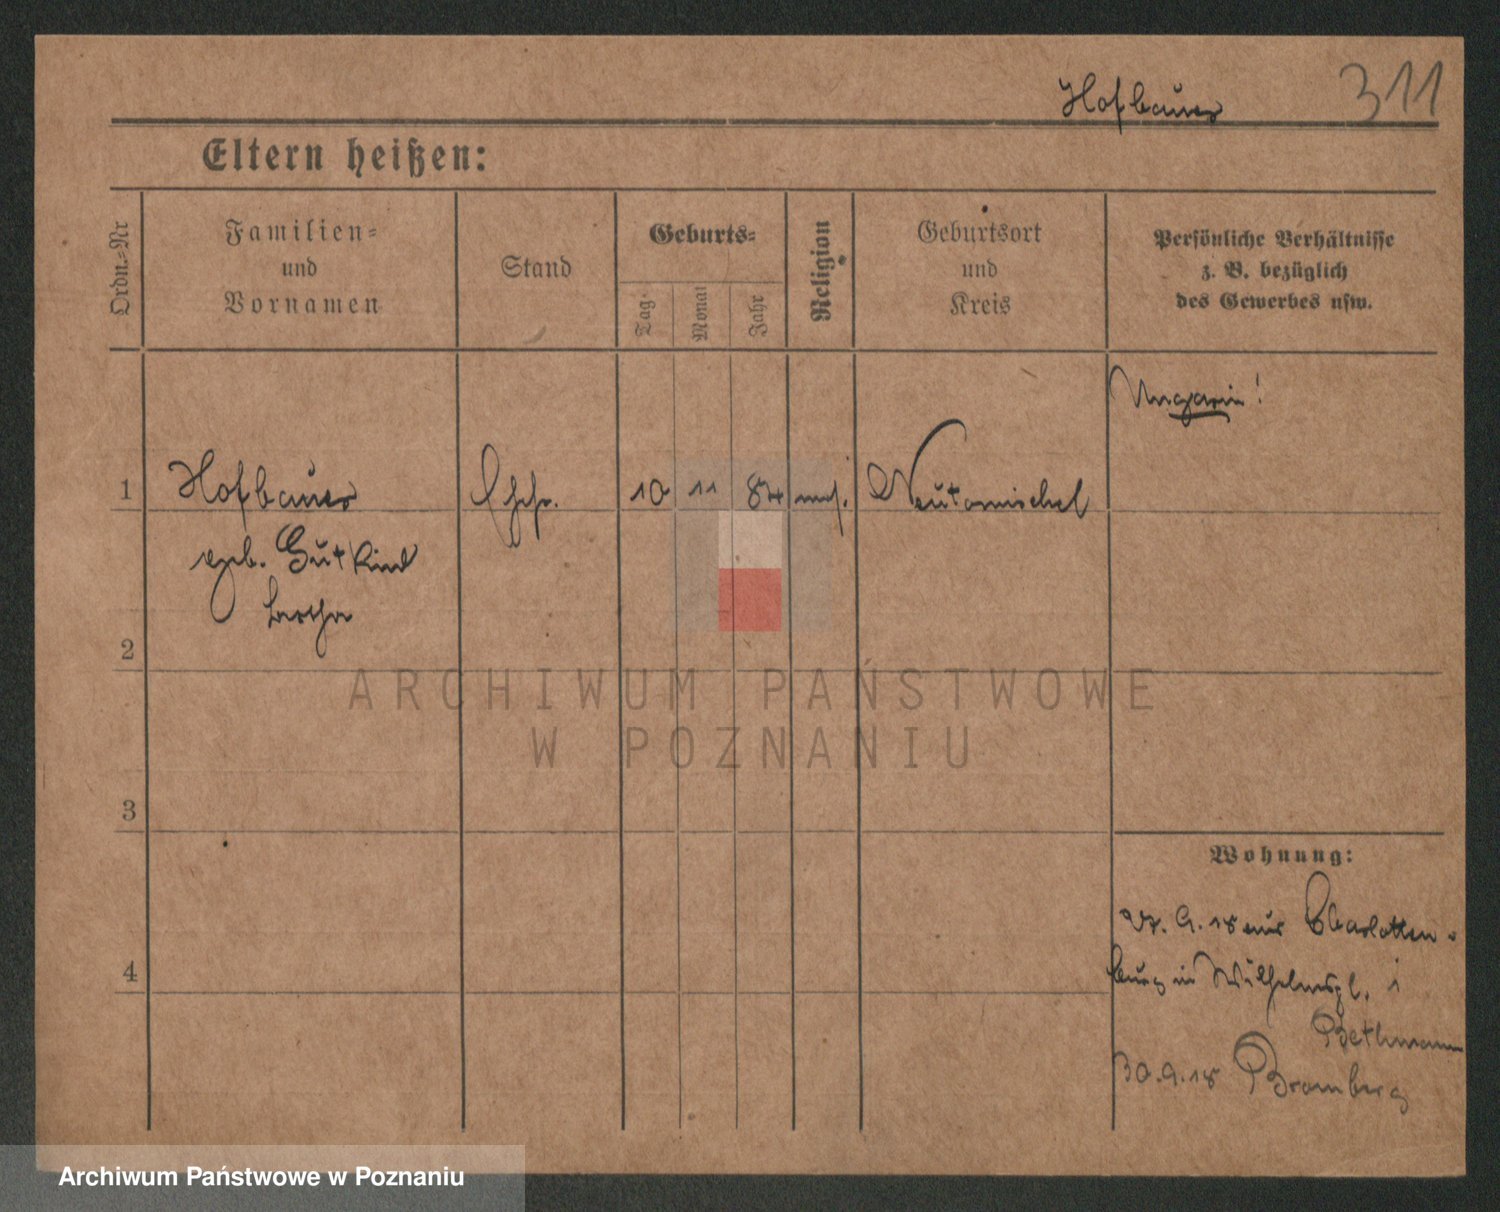 Hofbauer 311
Eltern heißen:
Ordn.-Nr
Familien-
und
Vornamen
Stand
Geburts-
Tag
Monat
Jahr
Religion
Geburtsort
und
Kreis
Persönliche Verhältnisse
z. B. bezüglich
des Gewerbes usw.
Ungarin!
1 Hofbauer 10 11 84 mos. Neutomischel
geb. Gutkind
Bertha
2
3
4
Wohnung:
27. 9. 18 aus Charlotten-
burg in Wilhelmspl. 1
Bethmann
30.9.18 Bromberg
ARCHIWUM PAŃSTWOWE
W POZNANIU
Archiwum Państwowe w Poznaniu